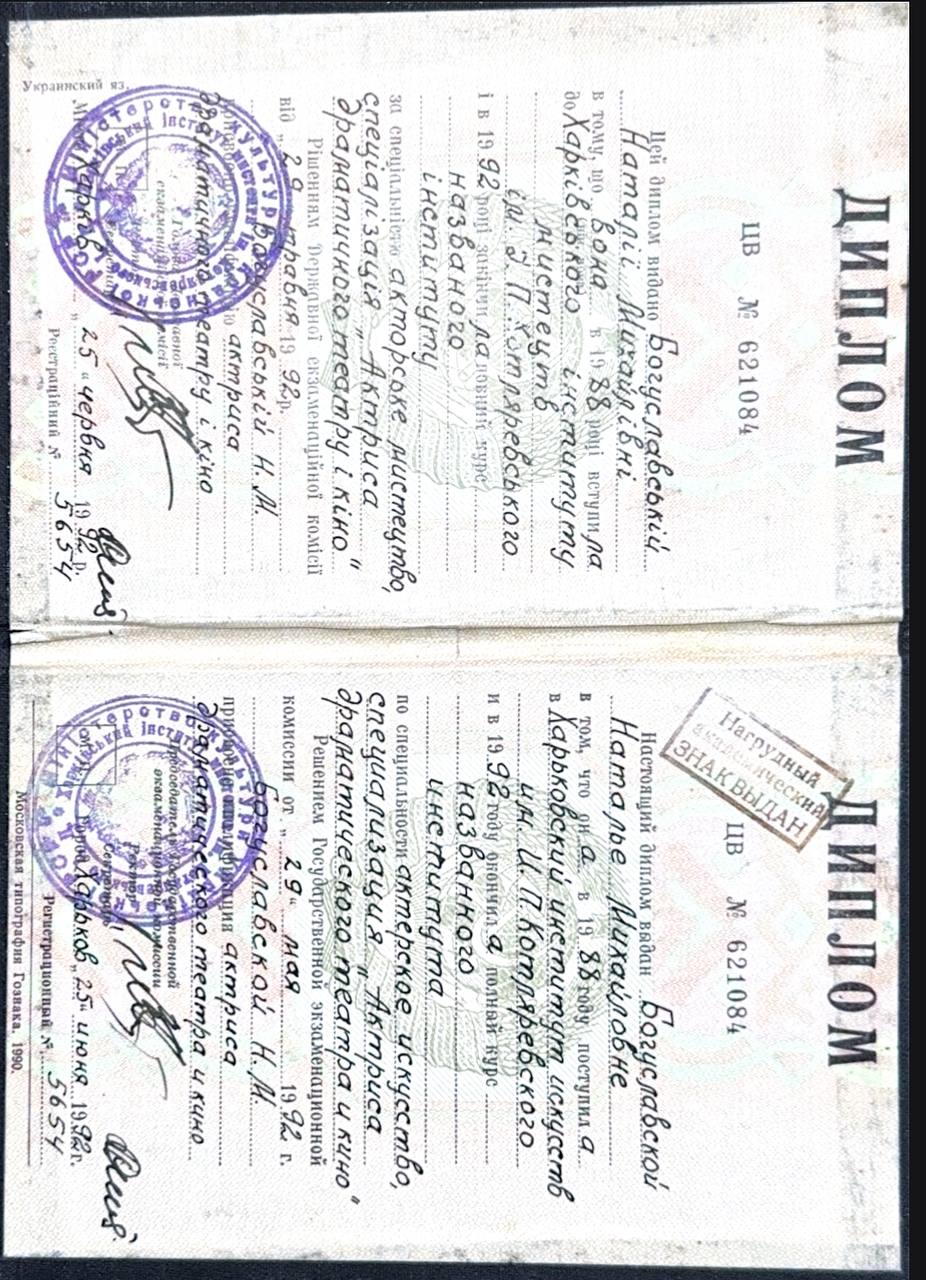 ДИПЛОМ
ЦВ № 621084
Цей диплом видано Богуславській
Наталії Михайлівні
в тому, що вона в 19 88 році вступила
до Харківського інституту
мистецтв
ім. І. П. Котляревського
і в 19 92 році закінчила повний курс
названого
інституту
за спеціальністю акторське мистецтво,
спеціалізація „Актриса
драматичного театру і кіно"
Рішенням Державної екзаменаційної комісії
від „ 29 травня 19 92 р.
Богуславській Н. М.
актриса
драматичного театру і кіно
Харків „ 25 " червня 19 92 р.
Реєстраційний № 5654
Украинский яз.
ДИПЛОМ
Нагрудный
академический
ЗНАК ВЫДАН
ЦВ № 621084
Настоящий диплом выдан Богуславской
Наталье Михайловне
в том, что она в 19 88 году поступила
в Харьковский институт искусств
им. И. П. Котляревского
и в 19 92 году окончила полный курс
названного
института
по специальности актерское искусство,
специализация „Актриса
драматического театра и кино"
Решением Государственной экзаменационной
комиссии от „ 29 " мая 19 92 г.
Богуславской Н. М.
присвоена квалификация актриса
драматического театра и кино
Председатель Государственной
экзаменационной комиссии
Ректор
Секретарь
Город Харьков „ 25 " июня 19 92 г.
Регистрационный № 5654
Московская типография Гознака. 1990.